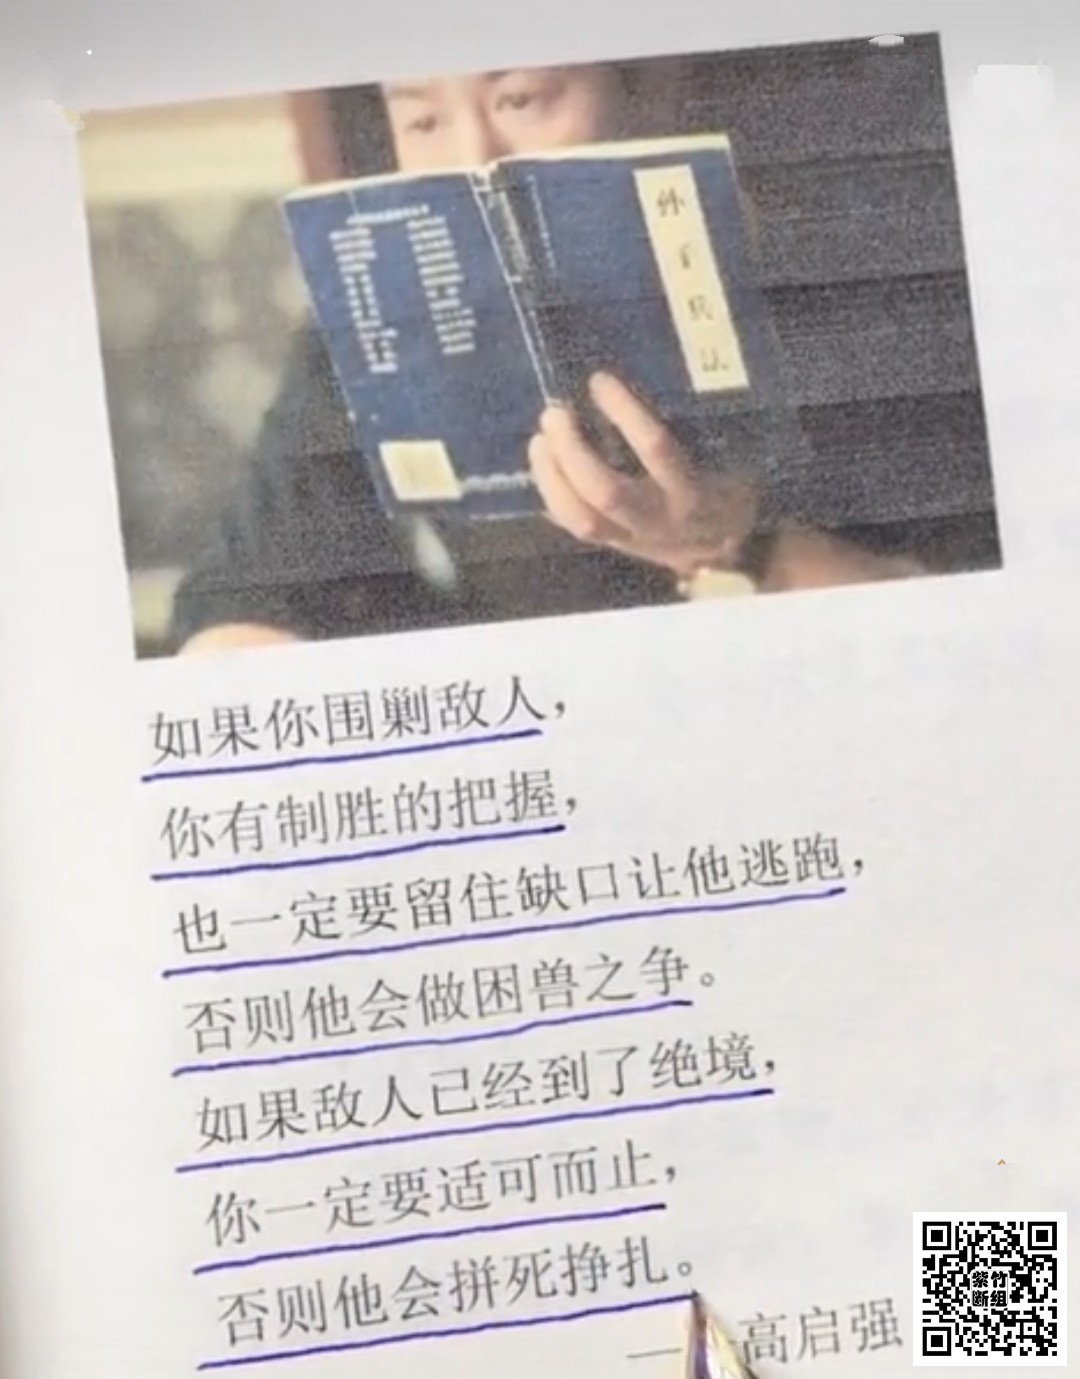 孙子兵法
如果你围剿敌人，
你有制胜的把握，
也一定要留住缺口让他逃跑，
否则他会做困兽之争。
如果敌人已经到了绝境，
你一定要适可而止，
否则他会拼死挣扎。
——高启强
紫竹
断组